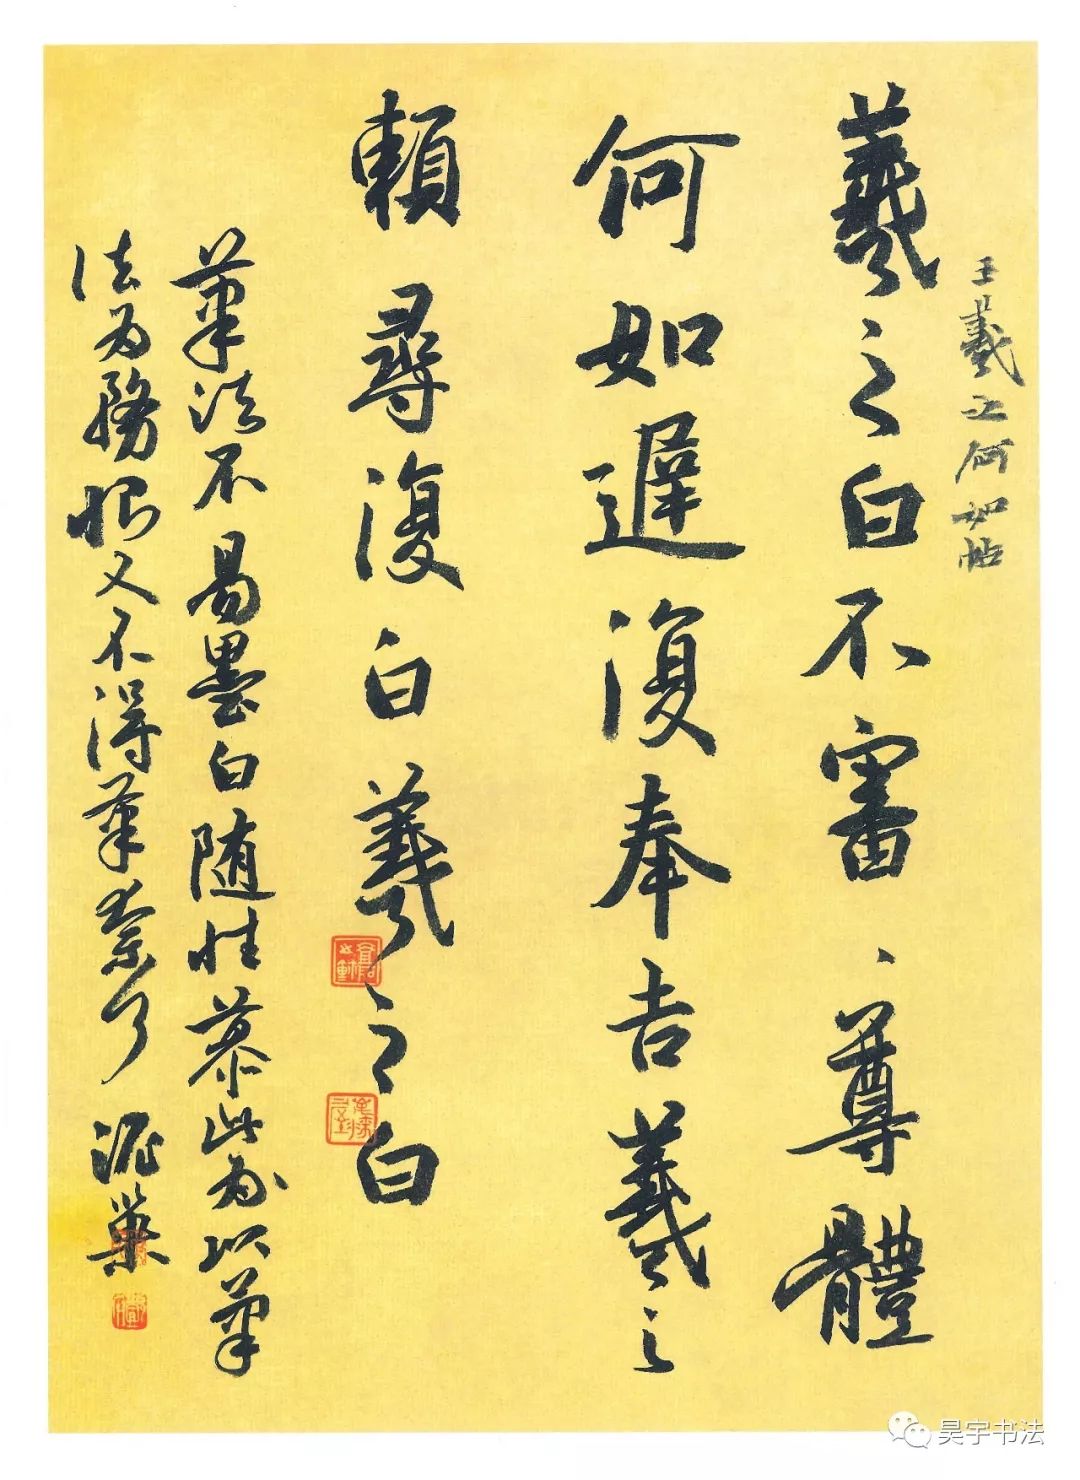 王羲之何如帖
羲之白不審、尊體
何如遲復奉告羲之
頼尋復白羲之白
筆法不易墨白随性慕此為以筆
法為務恨又不得筆
泥巢
昊宇书法